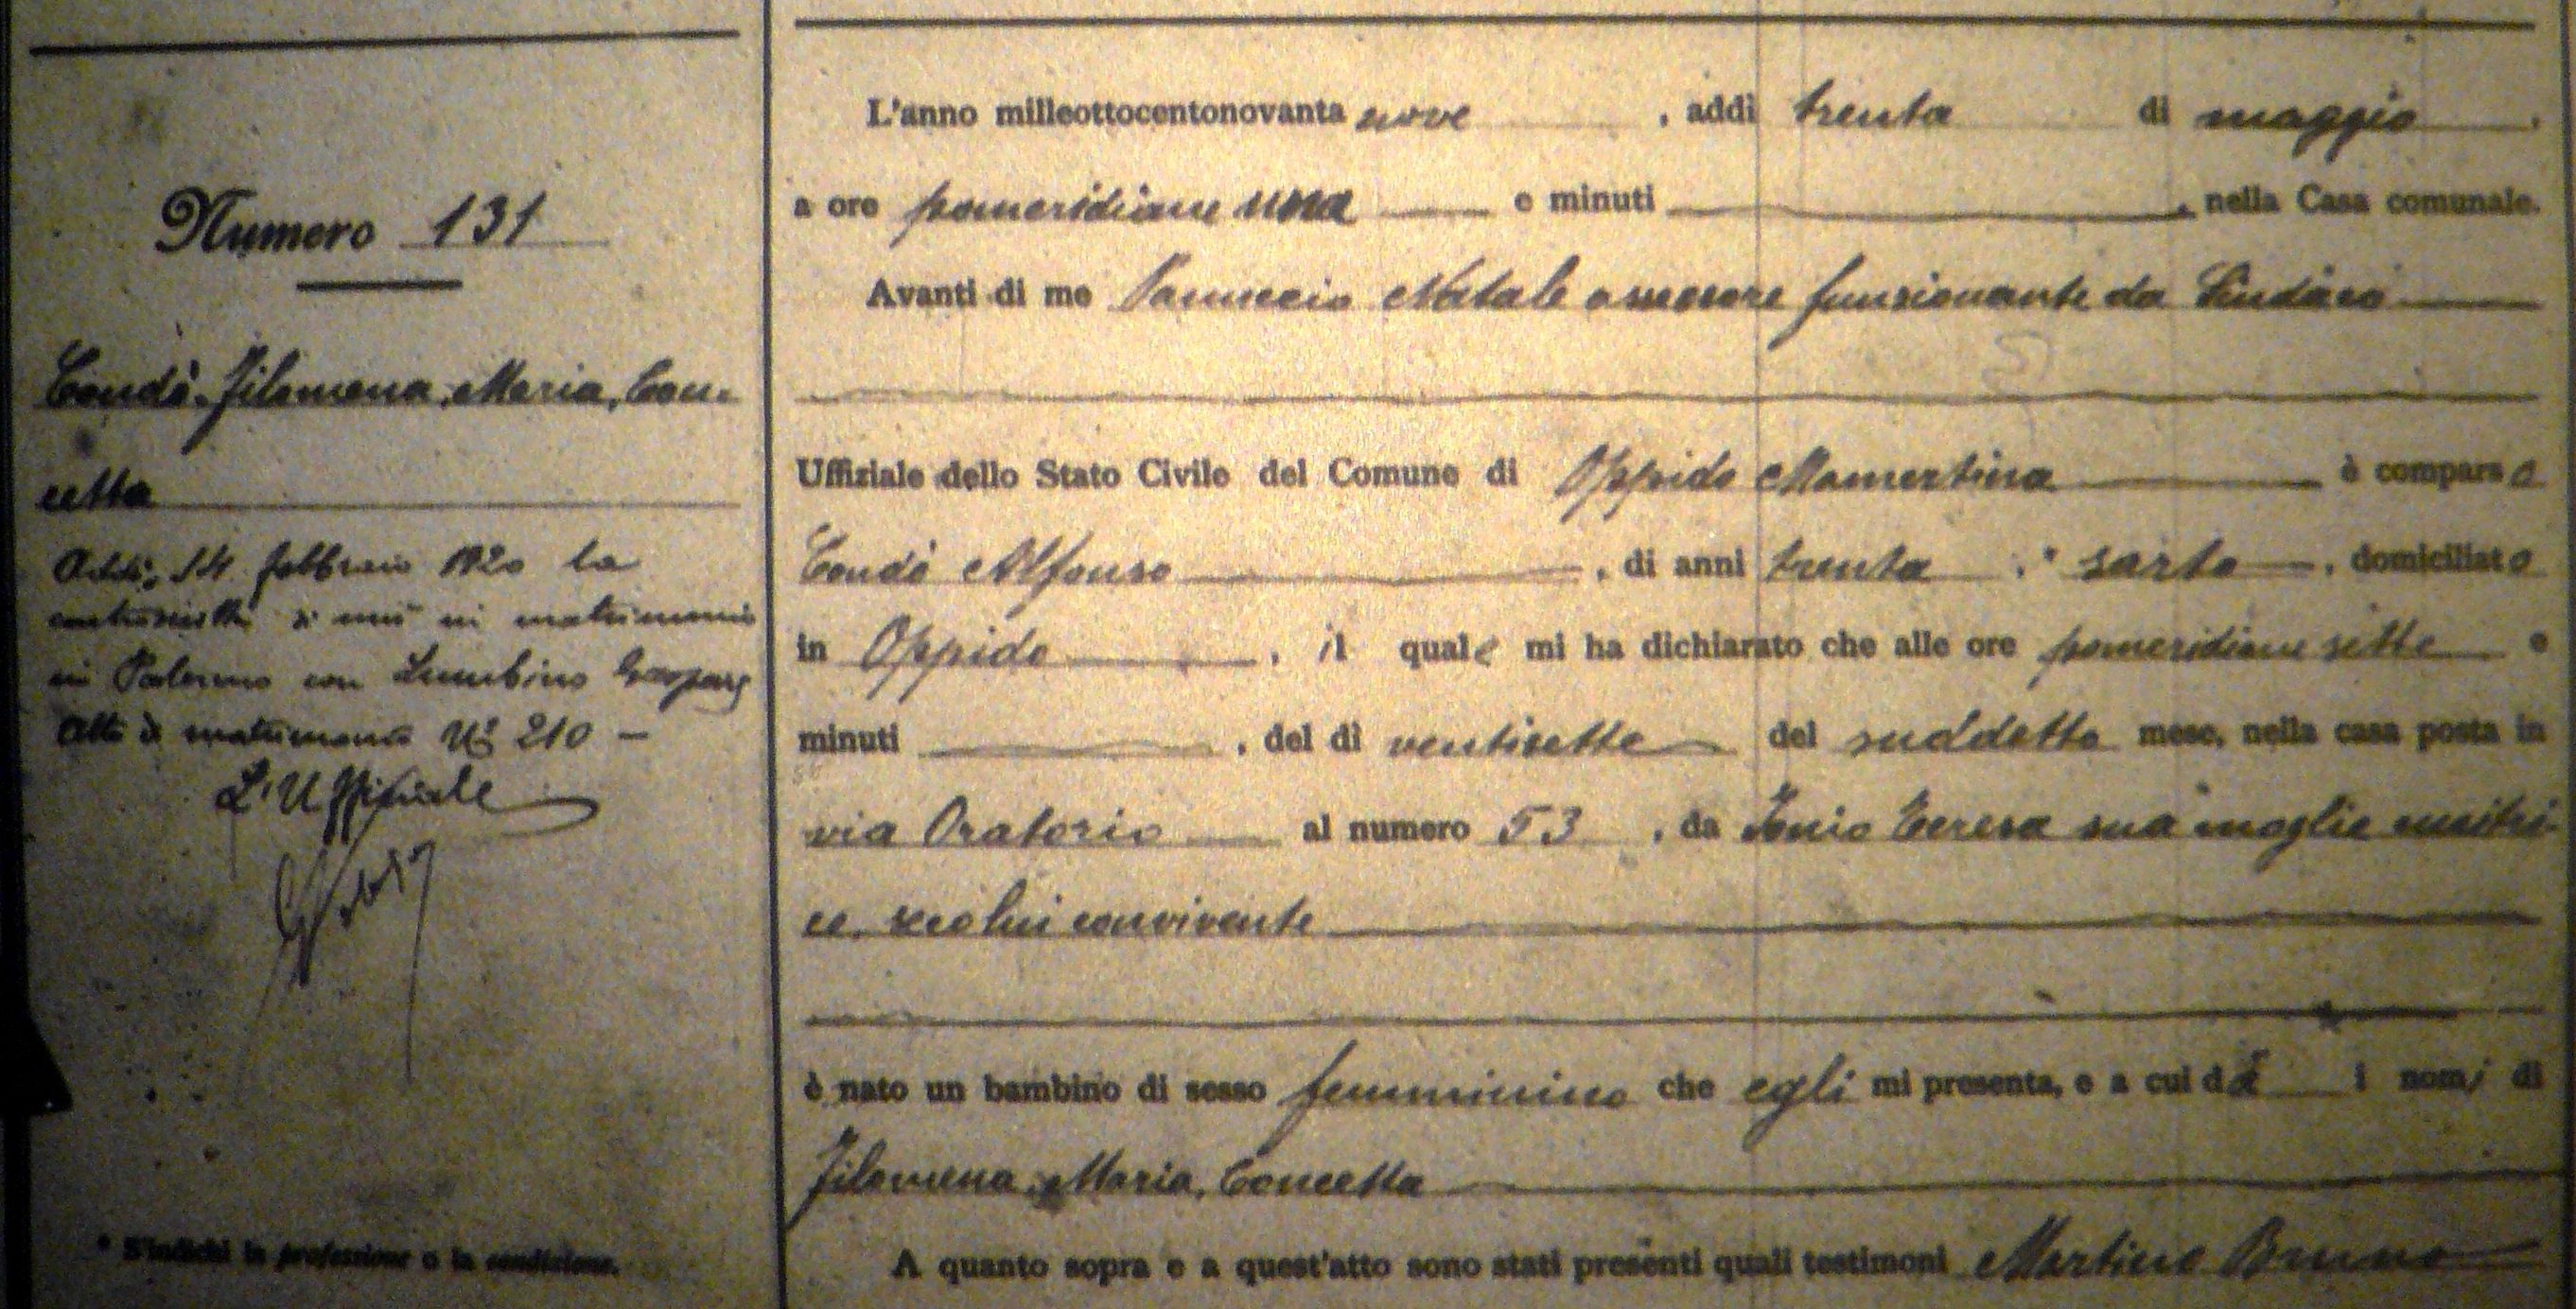 Numero 131
Condò Filomena, Maria, Con-
cetta
Addì, 14 febbraio 1920 la
controscritta si unì in matrimonio
in Palermo con Lumbino Gaspare
Atto di matrimonio N° 210 –
L'Uffiziale
* S'indichi la professione o la condizione.
L'anno milleottocentonovanta nove , addì trenta di maggio ,
a ore pomeridiane una e minuti , nella Casa comunale.
Avanti di me Panuccio Natale assessore funzionante da Sindaco
Uffiziale dello Stato Civile del Comune di Oppido Mamertina è comparso
Condò Alfonso , di anni trenta , * sarto , domiciliato
in Oppido , il quale mi ha dichiarato che alle ore pomeridiane sette e
minuti , del dì ventisette del suddetto mese, nella casa posta in
via Oratorio al numero 53 , da Teresa sua moglie
convivente
è nato un bambino di sesso femminino che egli mi presenta, e a cui dà i nomi di
Filomena, Maria, Concetta
A quanto sopra e a quest'atto sono stati presenti quali testimoni Martino Bruno